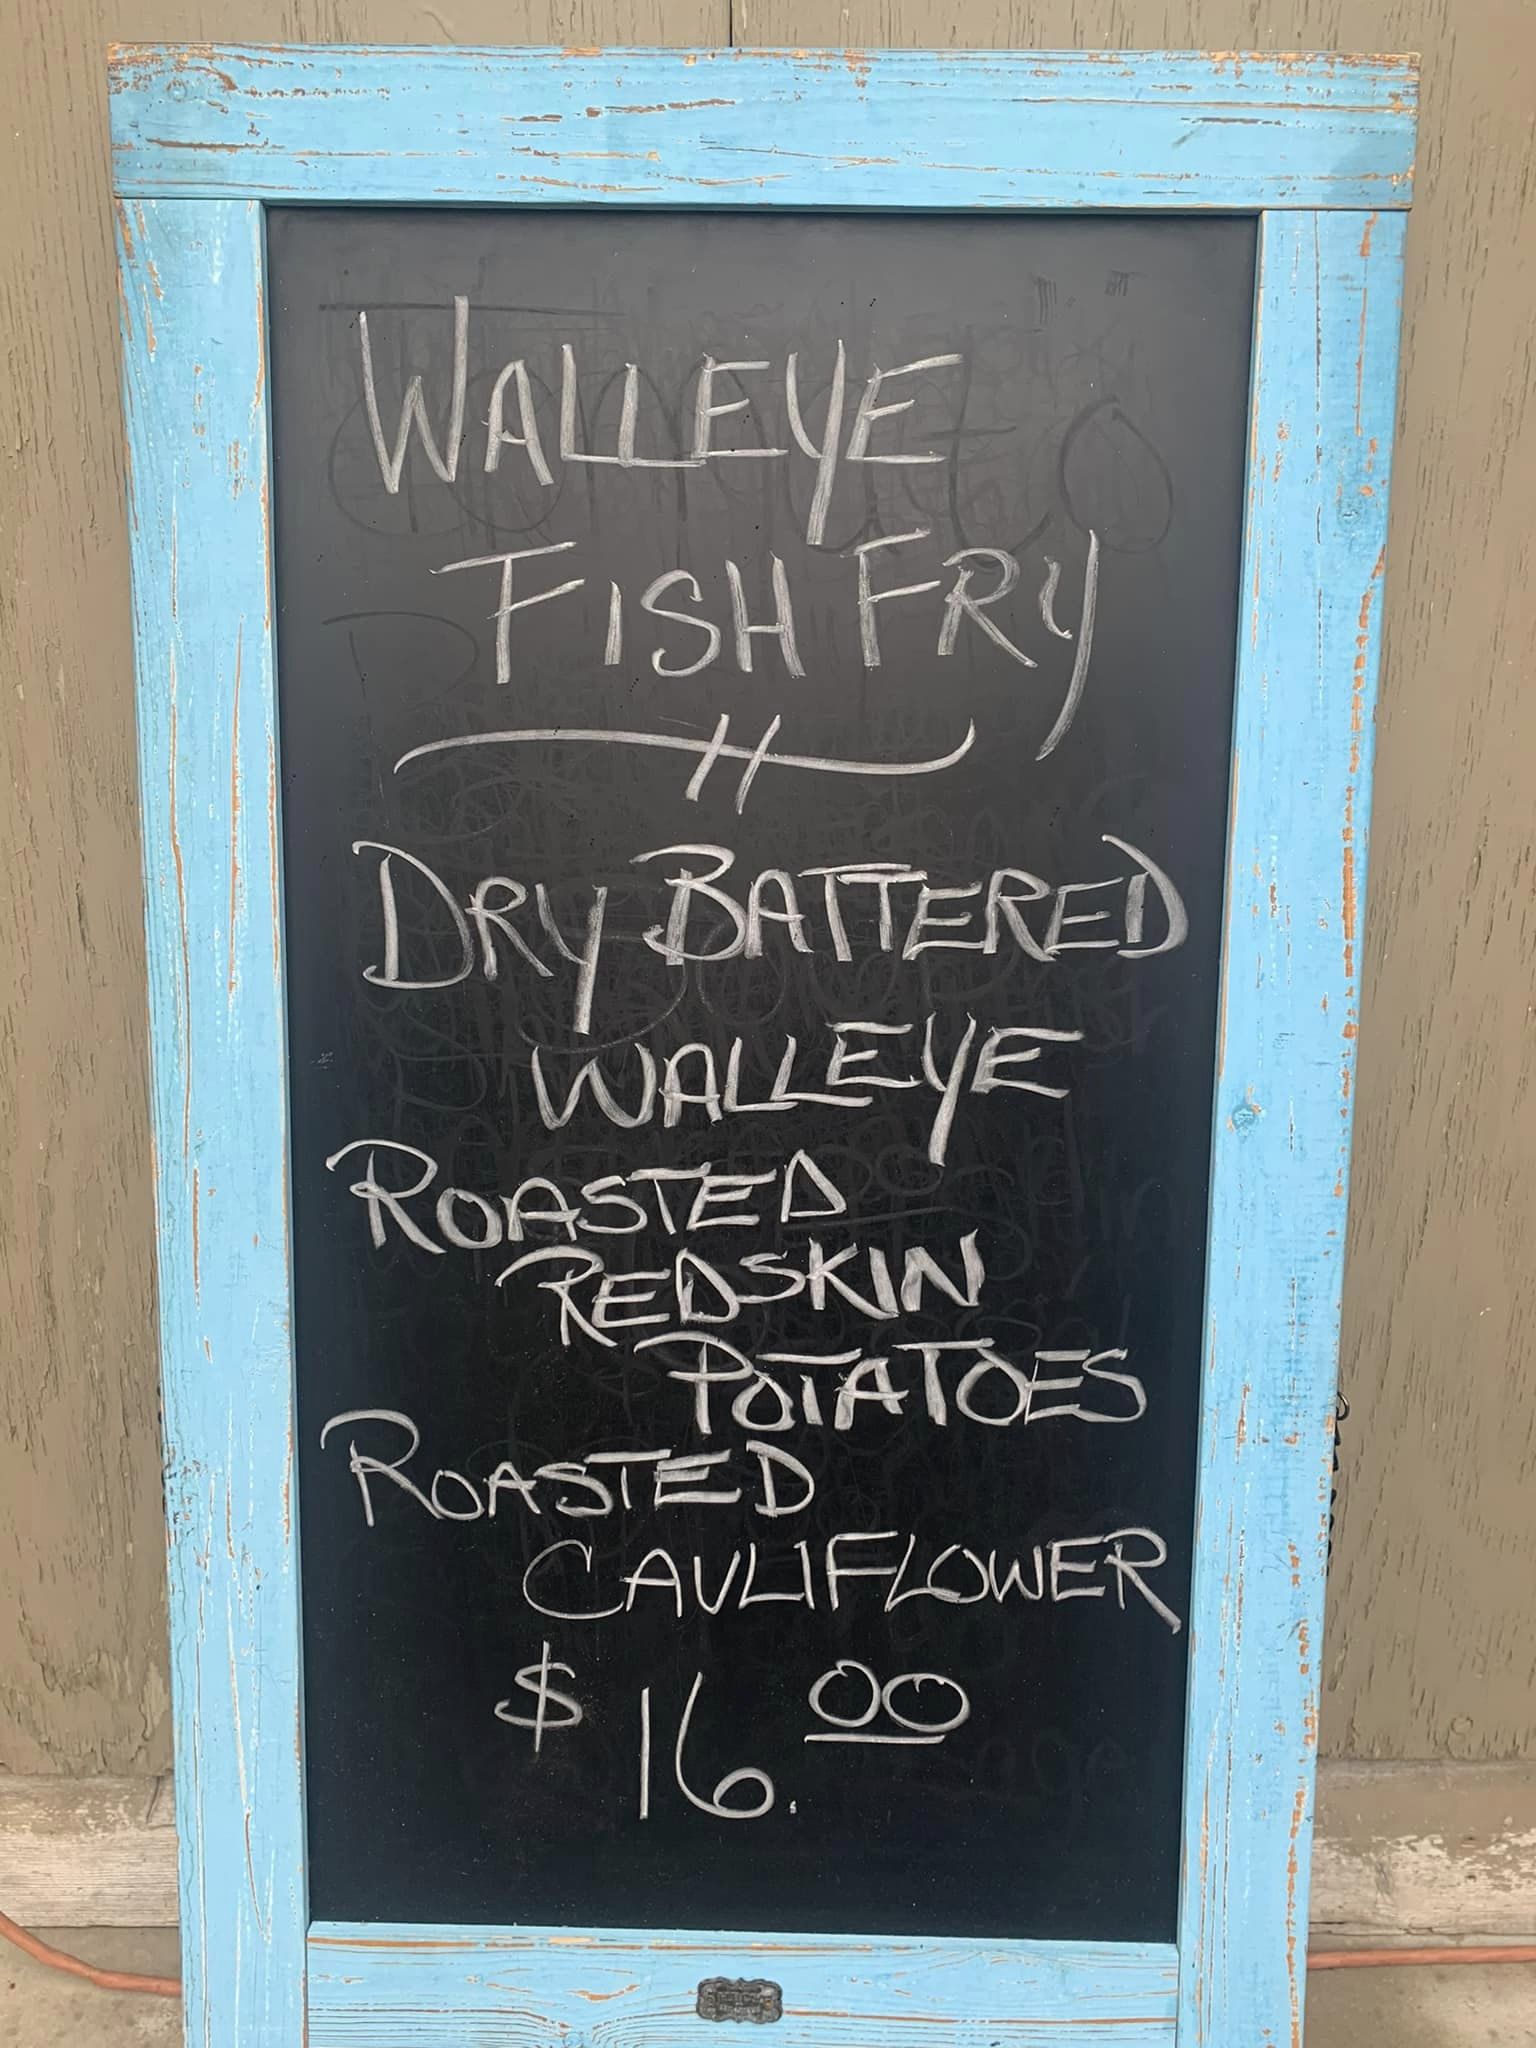 WALLEYE
FISH FRY
DRY BATTERED
WALLEYE
ROASTED
REDSKIN
POTATOES
ROASTED
CAULIFLOWER
$16.00